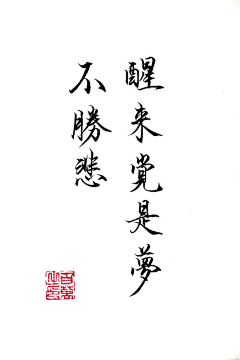 醒来覺是夢
不勝悲